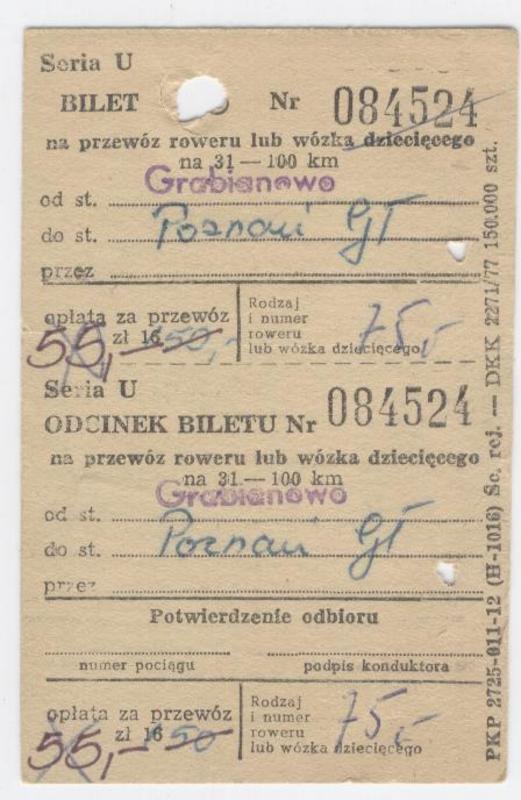 Seria U
BILET Nr 084524
na przewóz roweru lub wózka dziecięcego
na 31 — 100 km
Grabianowo
od st.
do st. Poznań Gł
przez
opłata za przewóz
zł 16 50,-
55,-
Rodzaj
i numer
roweru
lub wózka dziecięcego
75,-
Seria U
ODCINEK BILETU Nr 084524
na przewóz roweru lub wózka dziecięcego
na 31 — 100 km
Grabianowo
od st.
do st. Poznań Gł
przez
Potwierdzenie odbioru
numer pociągu podpis konduktora
opłata za przewóz
zł 16 50
55,-
Rodzaj
i numer
roweru
lub wózka dziecięcego
75,-
PKP 2725-011-12 (H-1016) Sc. rej. — DKK 2271/77 150.000 szt.